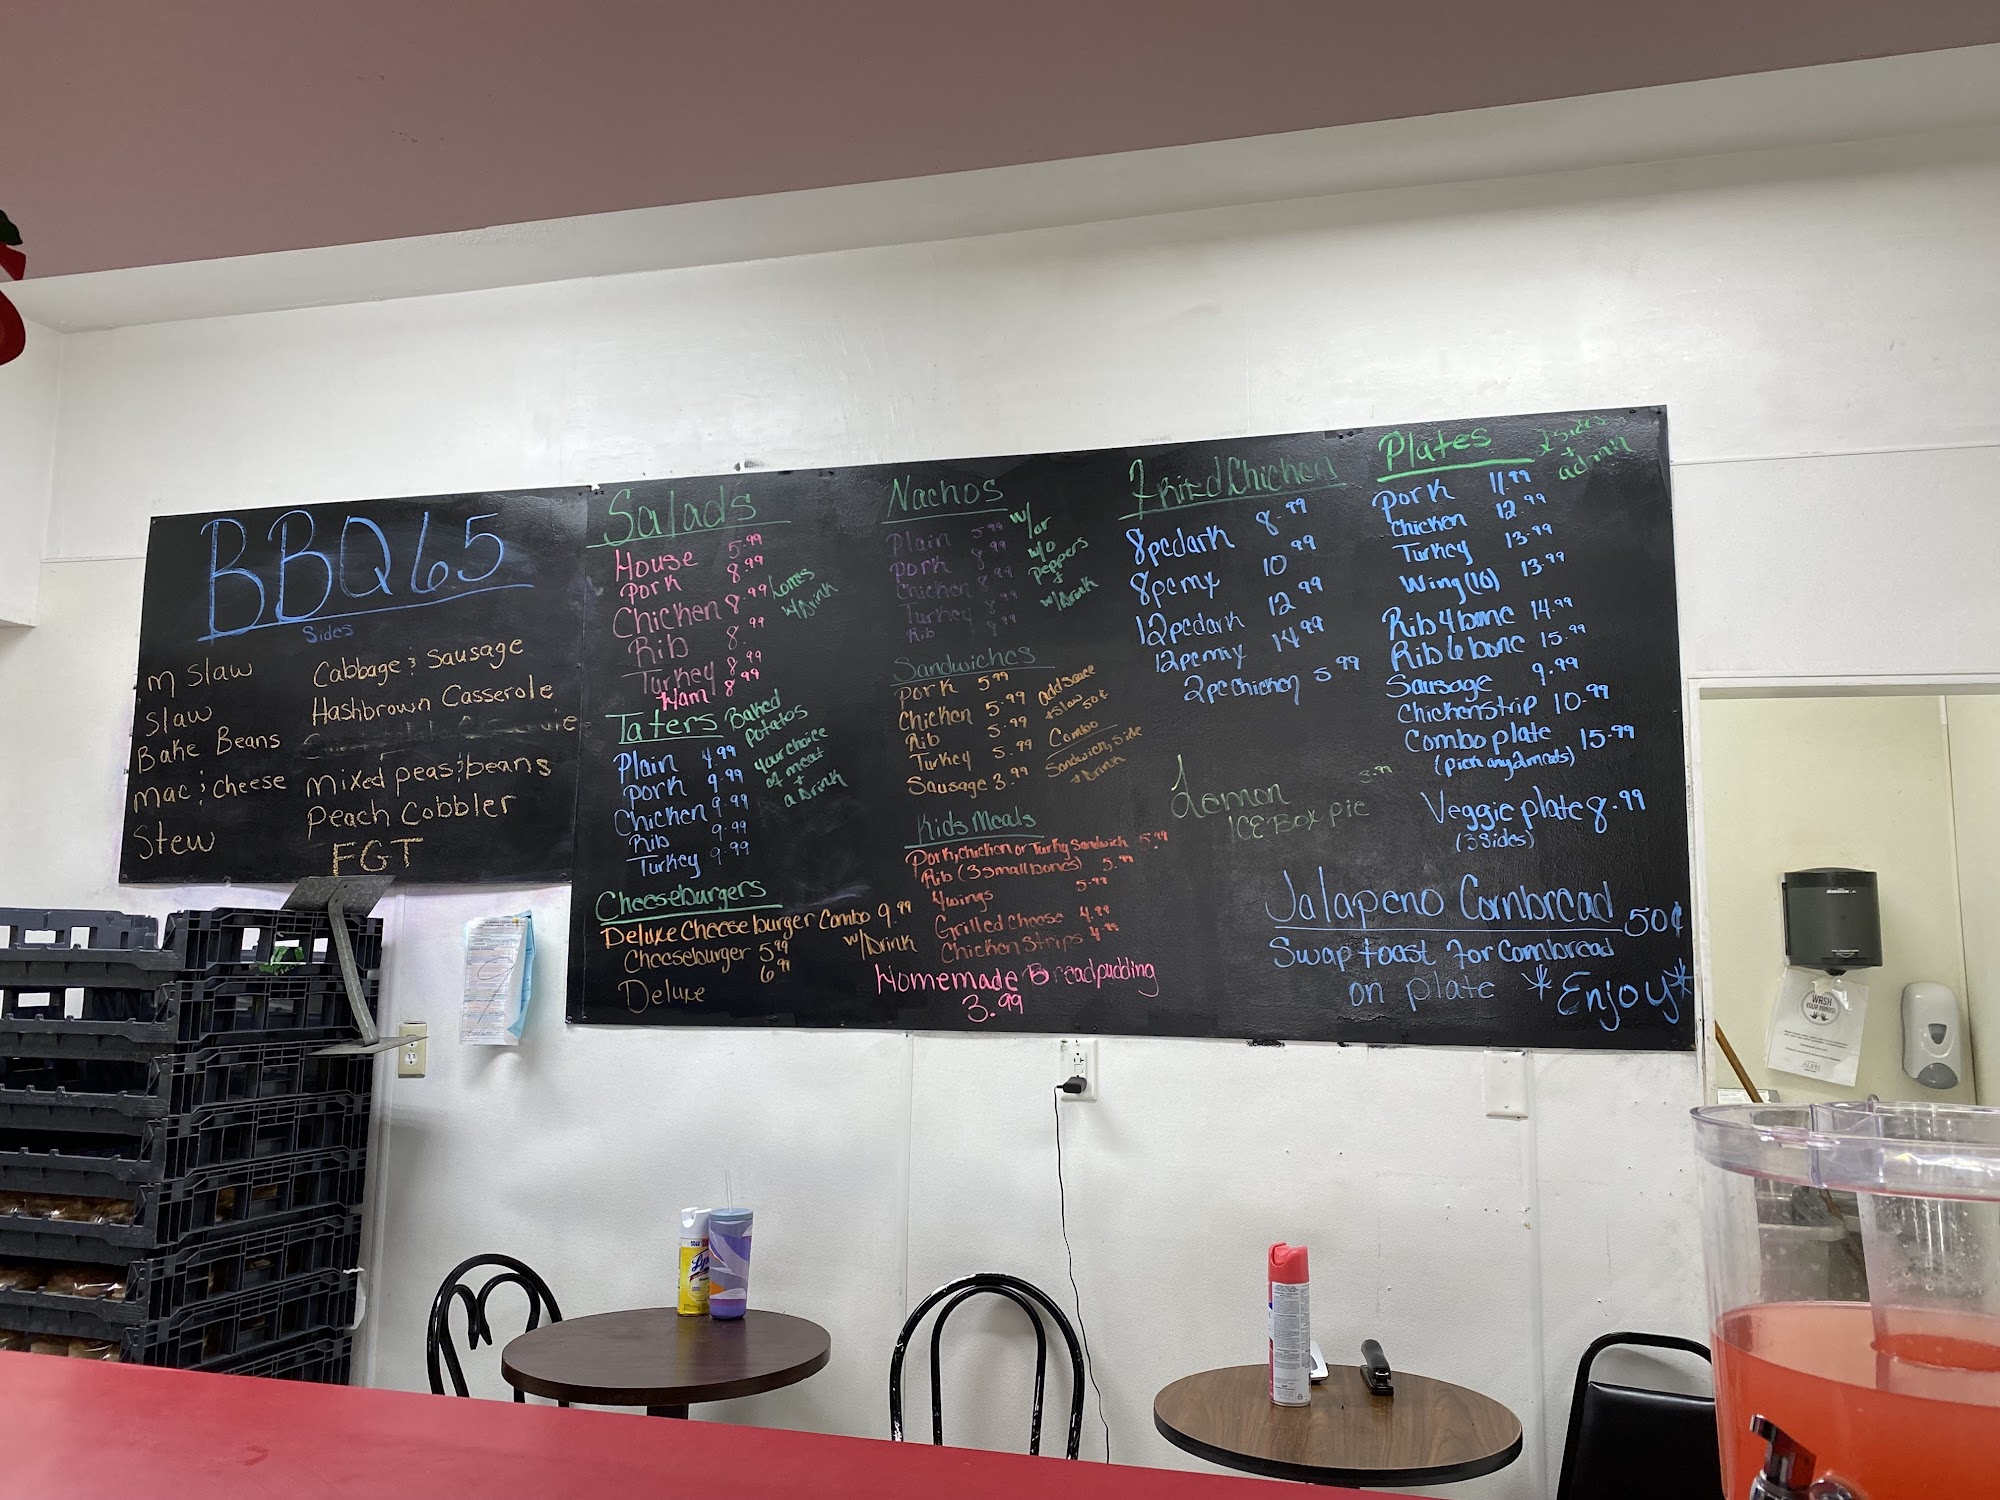 BBQ65
Sides
M Slaw
Slaw
Bake Beans
Mac & Cheese
Stew
Cabbage & Sausage
Hashbrown Casserole
Mixed peas & beans
Peach Cobbler
FGT
Salads
House 5.99
Pork 8.99
Chicken 8.99
Rib 8.99
Turkey 8.99
Ham 8.99
Comes
w/Drink
Taters
Baked
Potatos
your choice
of meat
+
a Drink
Plain 4.99
Pork 9.99
Chicken 9.99
Rib 9.99
Turkey 9.99
Cheeseburgers
Deluxe Cheeseburger Combo 9.99
w/Drink
Cheeseburger 5.99
Deluxe 6.99
Nachos
Plain 5.99
Pork 8.99
Chicken 8.99
Turkey 8.99
Rib 8.99
w/
or
w/o
peppers
+
w/Drink
Sandwiches
Pork 5.99
Chicken 5.99
Rib 5.99
Turkey 5.99
Sausage 3.99
Add sauce
+ slaw
50¢
Combo
Sandwich, Side
+ Drink
Kids Meals
Pork, chicken or Turky Sandwich 5.99
Rib (3 small bones) 5.99
4wings 5.99
Grilled cheese 4.99
Chicken Strips 4.99
Homemade Breadpudding
3.99
Fried Chicken
8pcdark 8.99
8pcmx 10.99
12pcdark 12.99
12pcmix 14.99
2pc chicken 5.99
Lemon 3.99
ICEBox pie
Plates
2 sides
+
a drink
Pork 11.99
Chicken 12.99
Turkey 13.99
Wing (10) 13.99
Rib 4 bone 14.99
Rib 6 bone 15.99
Sausage 9.99
Chicken strip 10.99
Combo plate 15.99
(pick any 2 meats)
Veggie plate 8.99
(3 Sides)
Jalapeno Cornbread 50¢
Swap toast for Cornbread
on plate *Enjoy*
WASH
YOUR HANDS
ADPH
Lysol